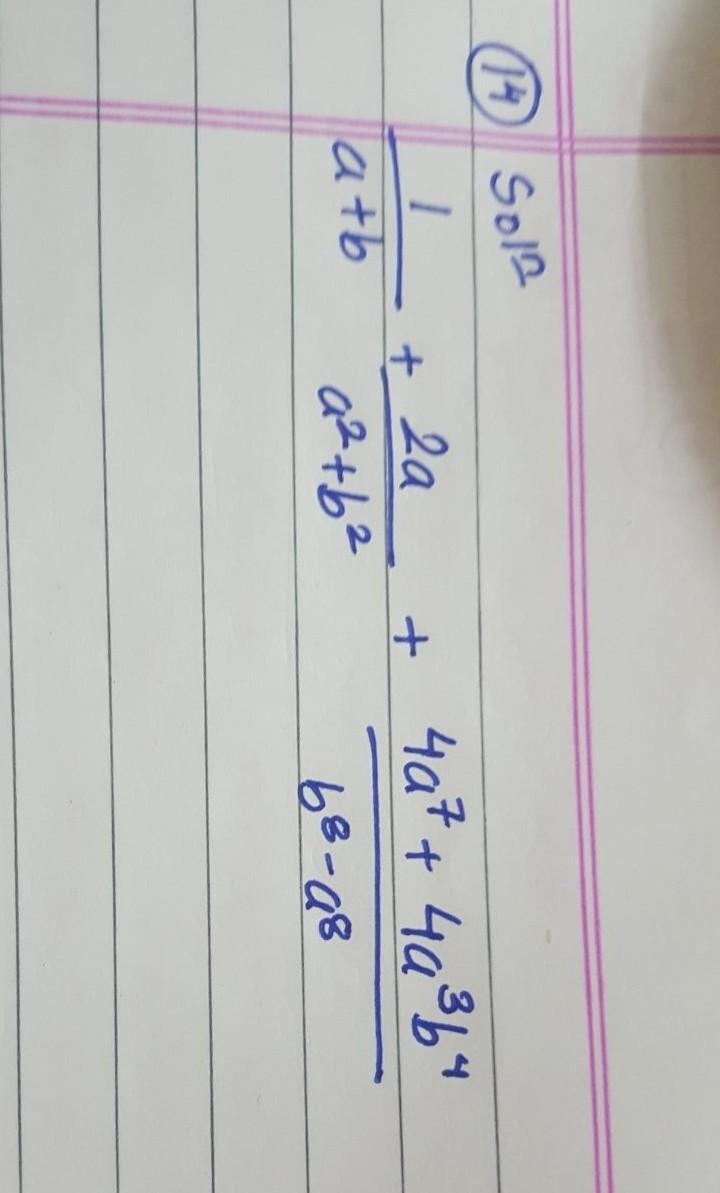 (14) Solⁿ
1/(a+b) + 2a/(a²+b²) + (4a⁷ + 4a³b⁴)/(b⁸ - a⁸)